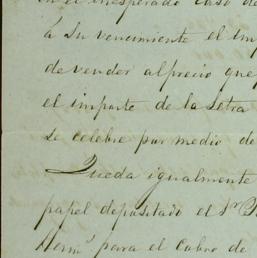 en el inesperado caso de
a su vencimiento el imp
de vender al precio que
el importe de la letra
se celebre por medio de
Queda igualmente
papel depositado el Sr
Herms para el Cobro de